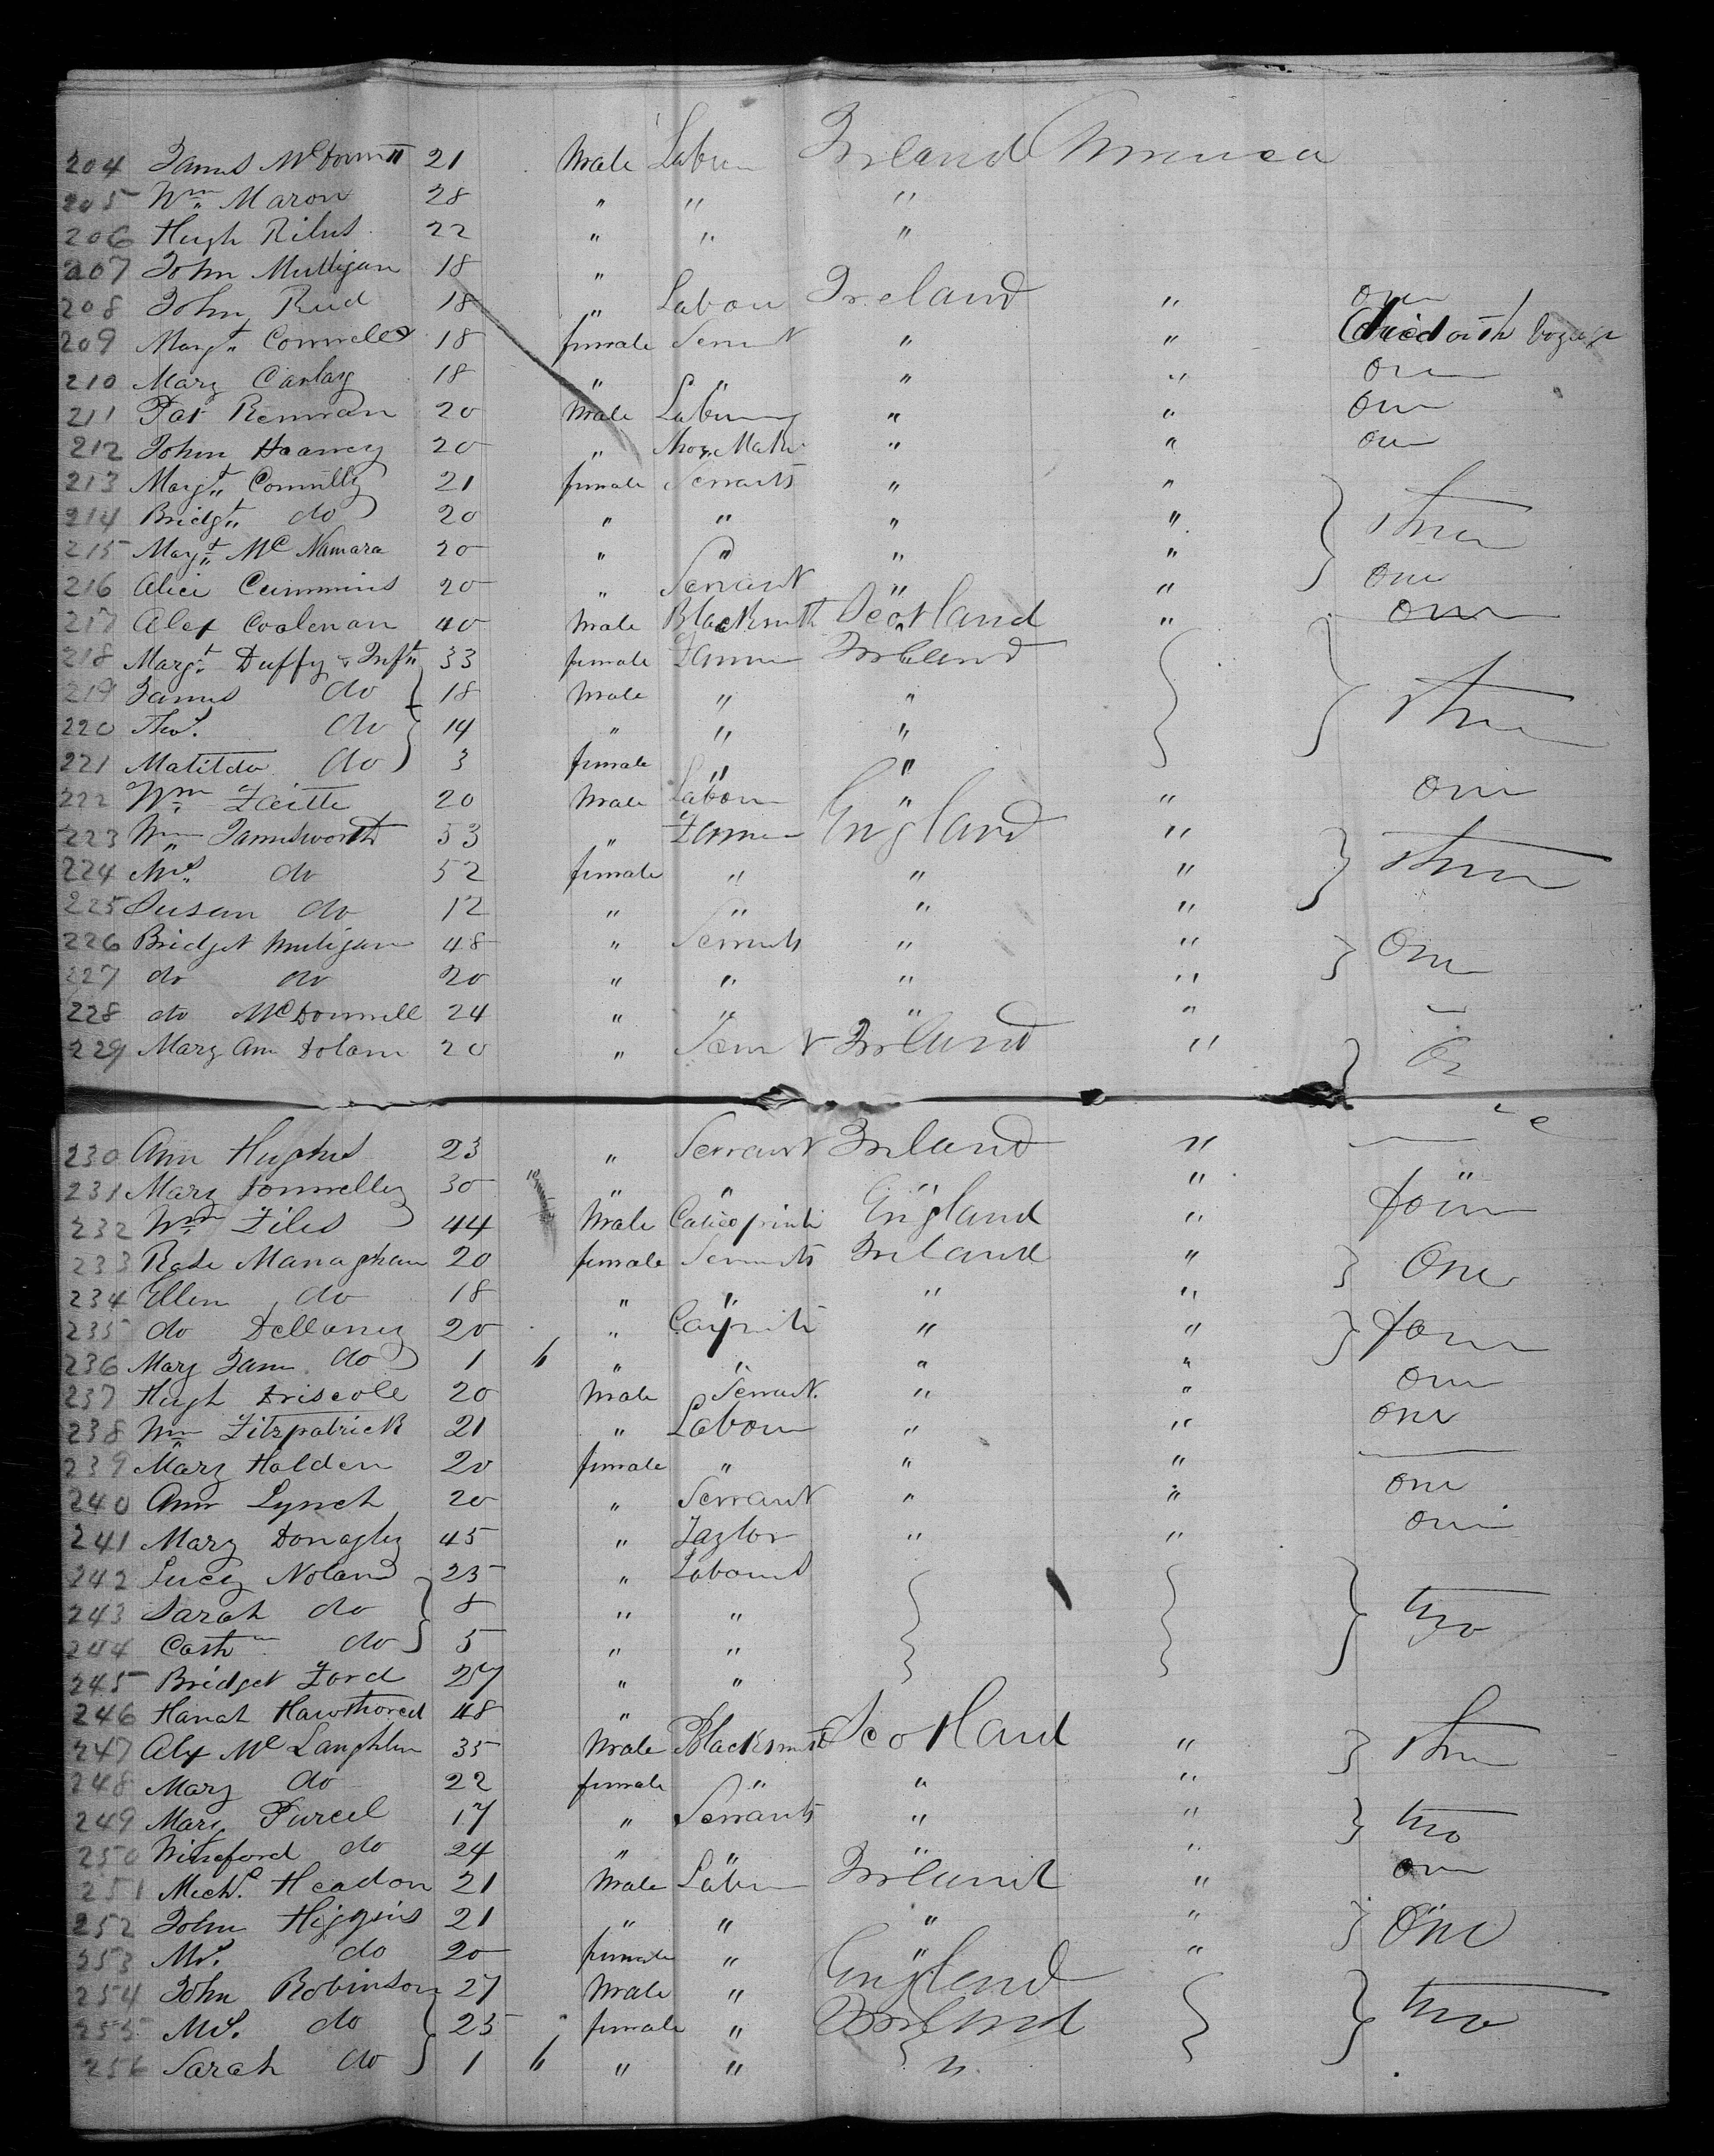 204 James McDonntt 21 Male Labour Ireland America
205 Wm Maron 28 " " "
206 Hugh Rilus 22 " " "
207 John Mulligan 18 "
208 John Reid 18 " Labou Ireland " one
209 Margt Connell 18 female Servnt " " died with
210 Mary Carlay 18 " " " " one
211 Pat Rennan 20 Male Labour " " one
212 John Heaney 20 " Maker " " one
213 Margt Connilly 21 female Servants " "
214 Bridgt do 20 " " " " three
215 Margt Mc Namara 20 " " " "
216 Alice Cummins 20 " Servant " " one
217 Alex Coolenan 40 Male Blacksmith Scotland " one
218 Margt Duffy & Inft 33 female Farmer Ireland
219 James do 18 Male " " three
220 Thos. do 14 " " "
221 Matilda do 3 female " "
222 Wm Faitte 20 Male Labour " " one
223 Wm Jamesworth 53 " Farmer England "
224 Mrs do 52 female " " " three
225 Susan do 12 " " " "
226 Bridget Muligan 48 " Servnts " " One
227 do do 20 " " " "
228 do McDonnell 24 " " " "
229 Mary Ann Dolan 20 " Servnt Ireland "
230 Ann Hughes 23 " Servant Ireland "
231 Mary Donnelly 30 " " " " "
232 Wm Files 44 Male Calicoprinter England " four
233 Rose Managhan 20 female Servnts Ireland " One
234 Ellen do 18 " " " "
235 do Dellaney 20 " Carpnter " " four
236 Mary Jane do 1 " " " " "
237 Hugh Driscole 20 Male Servant. " " one
238 Wm Fitzpatrick 21 " Labour " " one
239 Mary Holden 20 female " " "
240 Ann Lynch 20 " Servant " " one
241 Mary Donaghy 45 " Taylor " " one
242 Lucy Noland 25 " Labours
243 Sarah do 8 " " two
244 Cath do 5 " "
245 Bridget Ford 27 " "
246 Hanah Hawthored 48 "
247 Alex Mc Laughlin 35 Male Blacksmith Scotland " three
248 Mary do 22 female " " "
249 Mary Purcel 17 " Servants " " two
250 Wineford do 24 " " " "
251 Mich. Headon 21 Male Labur Ireland " one
252 John Higgins 21 " " " " One
253 Mrs. do 20 female " " "
254 John Robinson 27 Male " England
255 Mrs. do 25 female " Ireland two
256 Sarah do 1 " " " "